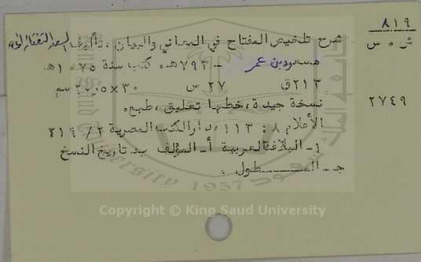 ٨١٩
ش ٠ س
شرح تلخيص المفتاح في المعاني والبيان ، تأليف السعد التفتازاني
مسعود بن عمر - ٧٩٣هـ . كتب سنة ١٠٧٥هـ
٢١٢ق ٢٧ س ٣٠×٢٠٫٥ سم
٢٧٤٩
نسخة جيدة ، خطها تعليق ، طبع .
الأعلام ٨ : ١١٣ ، دار الكتب المصرية ٢ / ٢١٩
١- البلاغة العربية أ- المؤلف ب- تاريخ النسخ
ج- المطول .
Copyright © King Saud University
1957
University